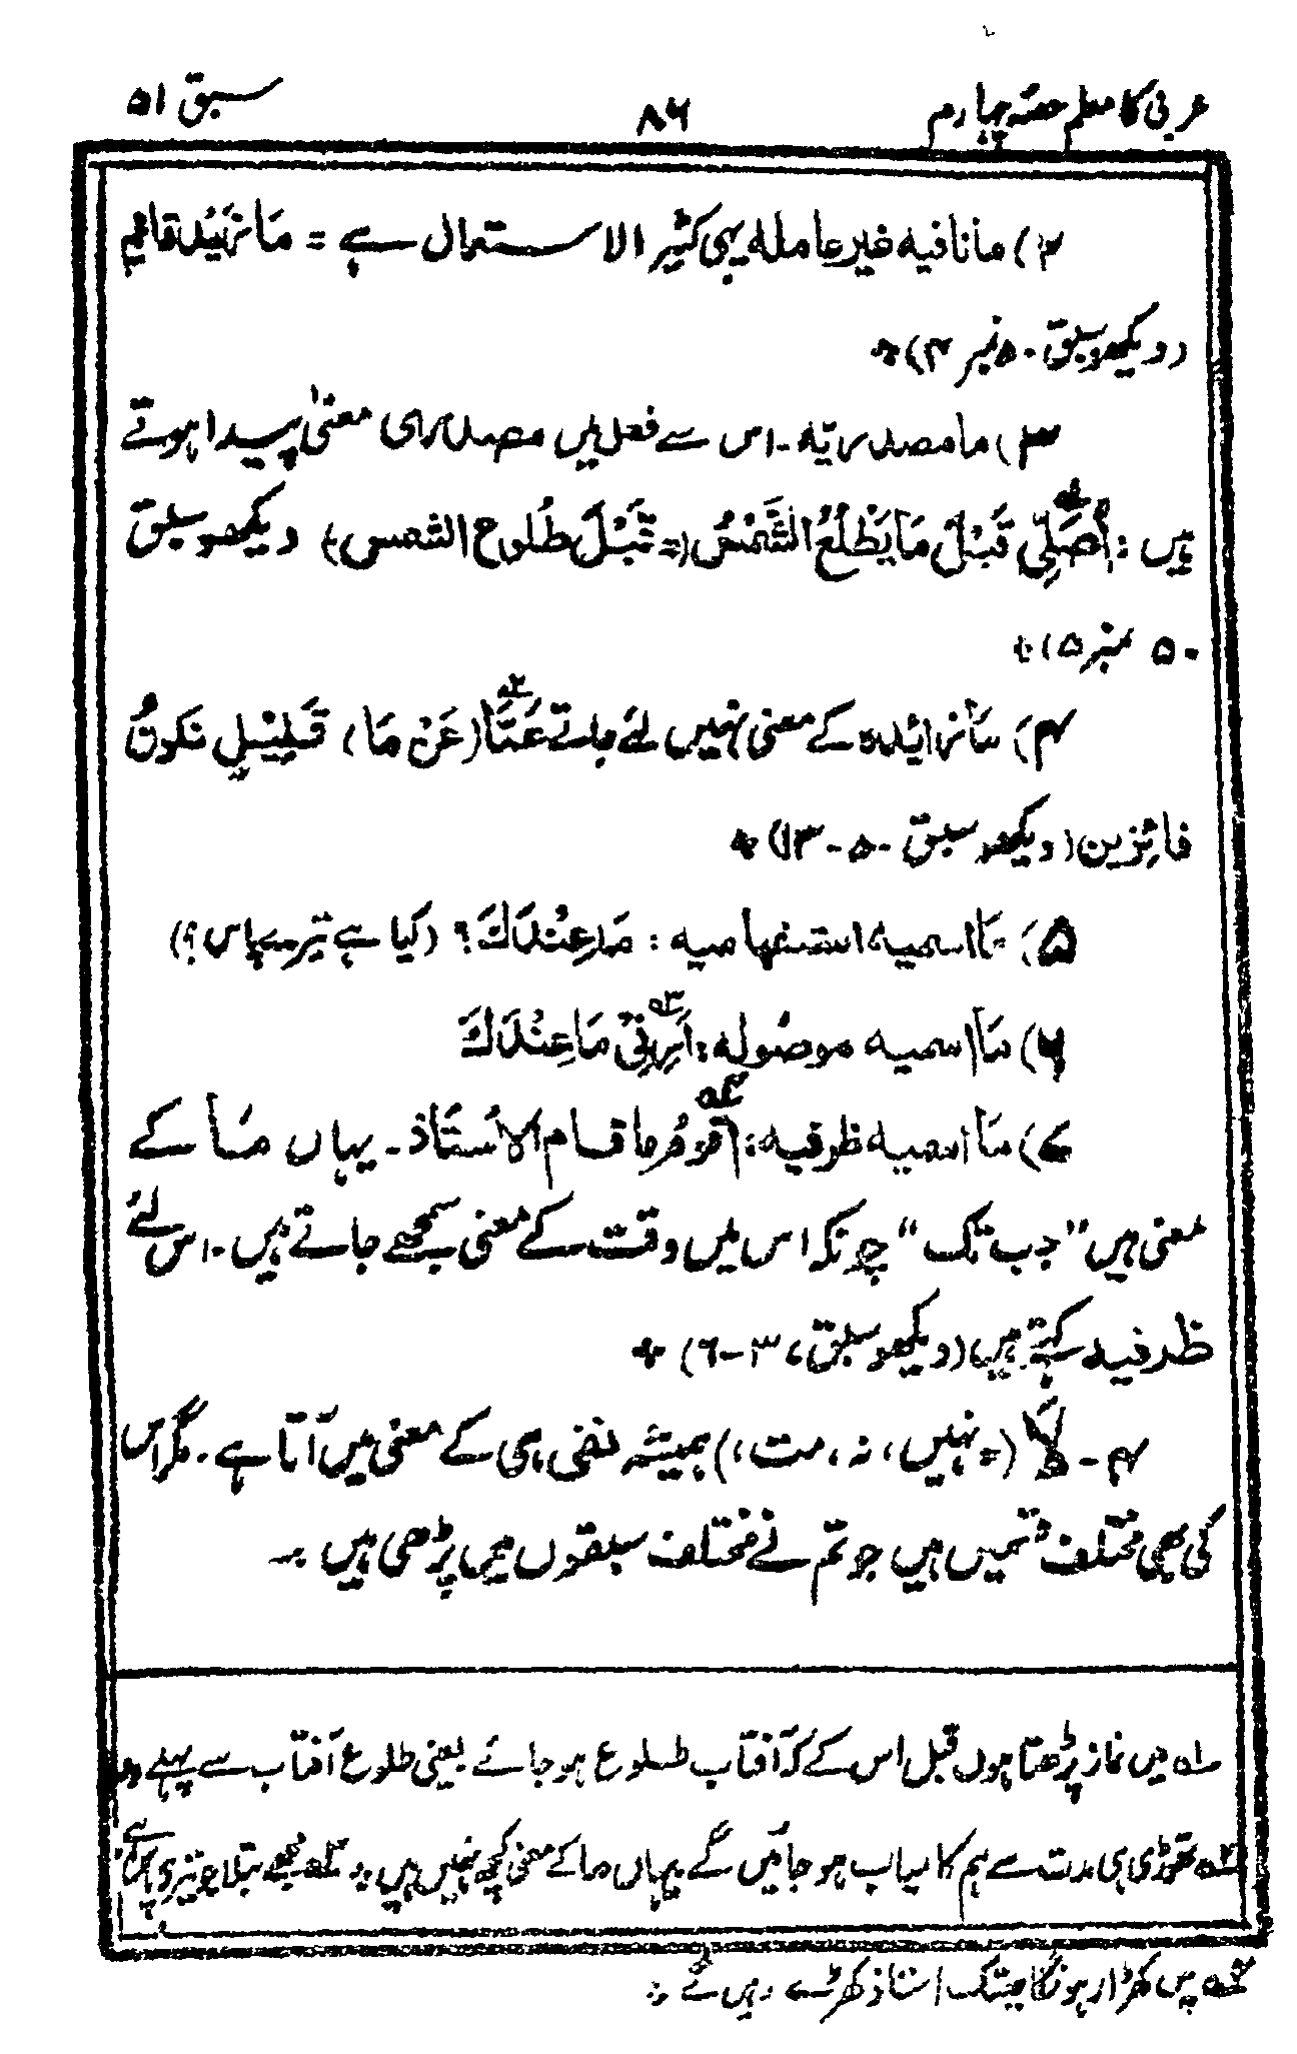 عربی کا معلم حصّہ چہارم
۸۶
سبق ۵۱
۲) ما نافیہ غیر عاملہ یہی کثیر الاستعمال ہے = مَا زَیْدٌ قائم
(دیکھو سبق ۵۰ نمبر ۴) *
۳) ما مصدریّہ۔ اس سے فعل میں مصدری معنیٰ پیدا ہوتے
ہیں : اُصَلِّی قَبْلَ مَا یَطْلُعُ الشَّمْسُ (= قَبْلَ طُلوع الشمس) دیکھو سبق
۵۰ نمبر ۵) *
۴) مَا زائدہ کے معنی نہیں لئے جاتے عَمَّا (عَنْ مَا) قَلِیْلٍ نَکونُ
فائزین (دیکھو سبق ۵۰-۱۳) *
۵) مَا اسمیہ استفہامیہ : مَا عِنْدَكَ؟ (کیا ہے تیرے پاس؟)
۶) مَا اسمیہ موصُولہ : اَرِنِیْ مَا عِنْدَكَ
۷) مَا اسمیہ ظرفیہ : اَقومُ ما قام الاُستَاذ ۔ یہاں مَا کے
معنی ہیں "جب تک" چونکہ اس میں وقت کے معنی سمجھے جاتے ہیں۔ اس لئے
ظرفیہ کہتے ہیں (دیکھو سبق ۳-۶) *
۴- لَا (= نہیں، نہ، مت،) ہمیشہ نفی ہی کے معنی میں آتا ہے۔ مگر اس
کی بھی مختلف قسمیں ہیں جو تم نے مختلف سبقوں میں پڑھی ہیں :-
۱ میں نماز پڑھتا ہوں قبل اس کے کہ آفتاب طلوع ہو جائے یعنی طلوع آفتاب سے پہلے
۲ تھوڑی ہی مدت سے ہم کامیاب ہو جائیں گے یہاں ما کے معنی کچھ نہیں ہیں * ۳ مجھے بتلا جو تیرے پاس ہے
۴ میں کھڑا رہونگا جبتک استاذ کھڑے رہیں گے *